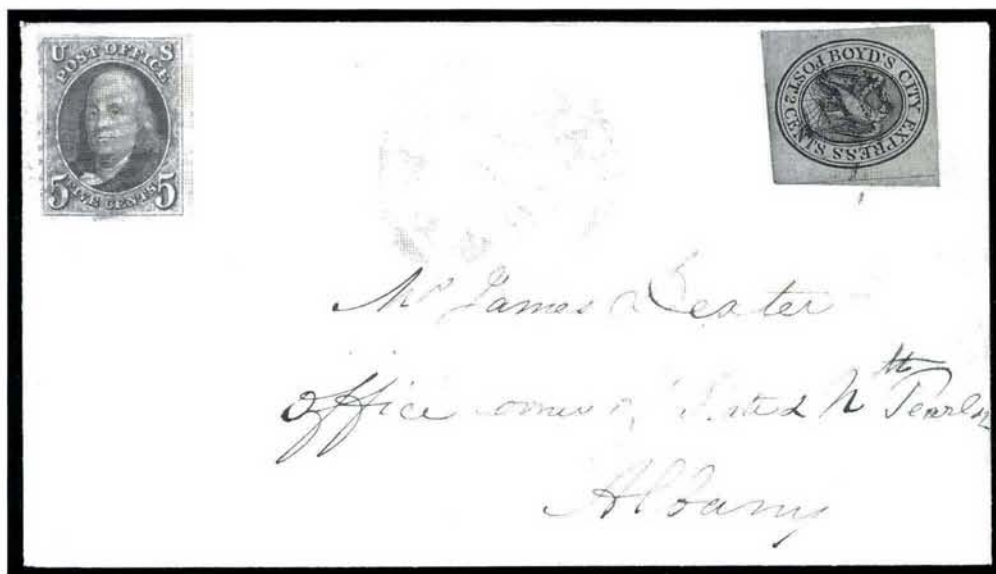 U S
POST OFFICE
5 FIVE CENTS 5
BOYD'S CITY EXPRESS POST 2 CENTS
Mr James Dexter
office corner of State & Nth Pearl st
Albany